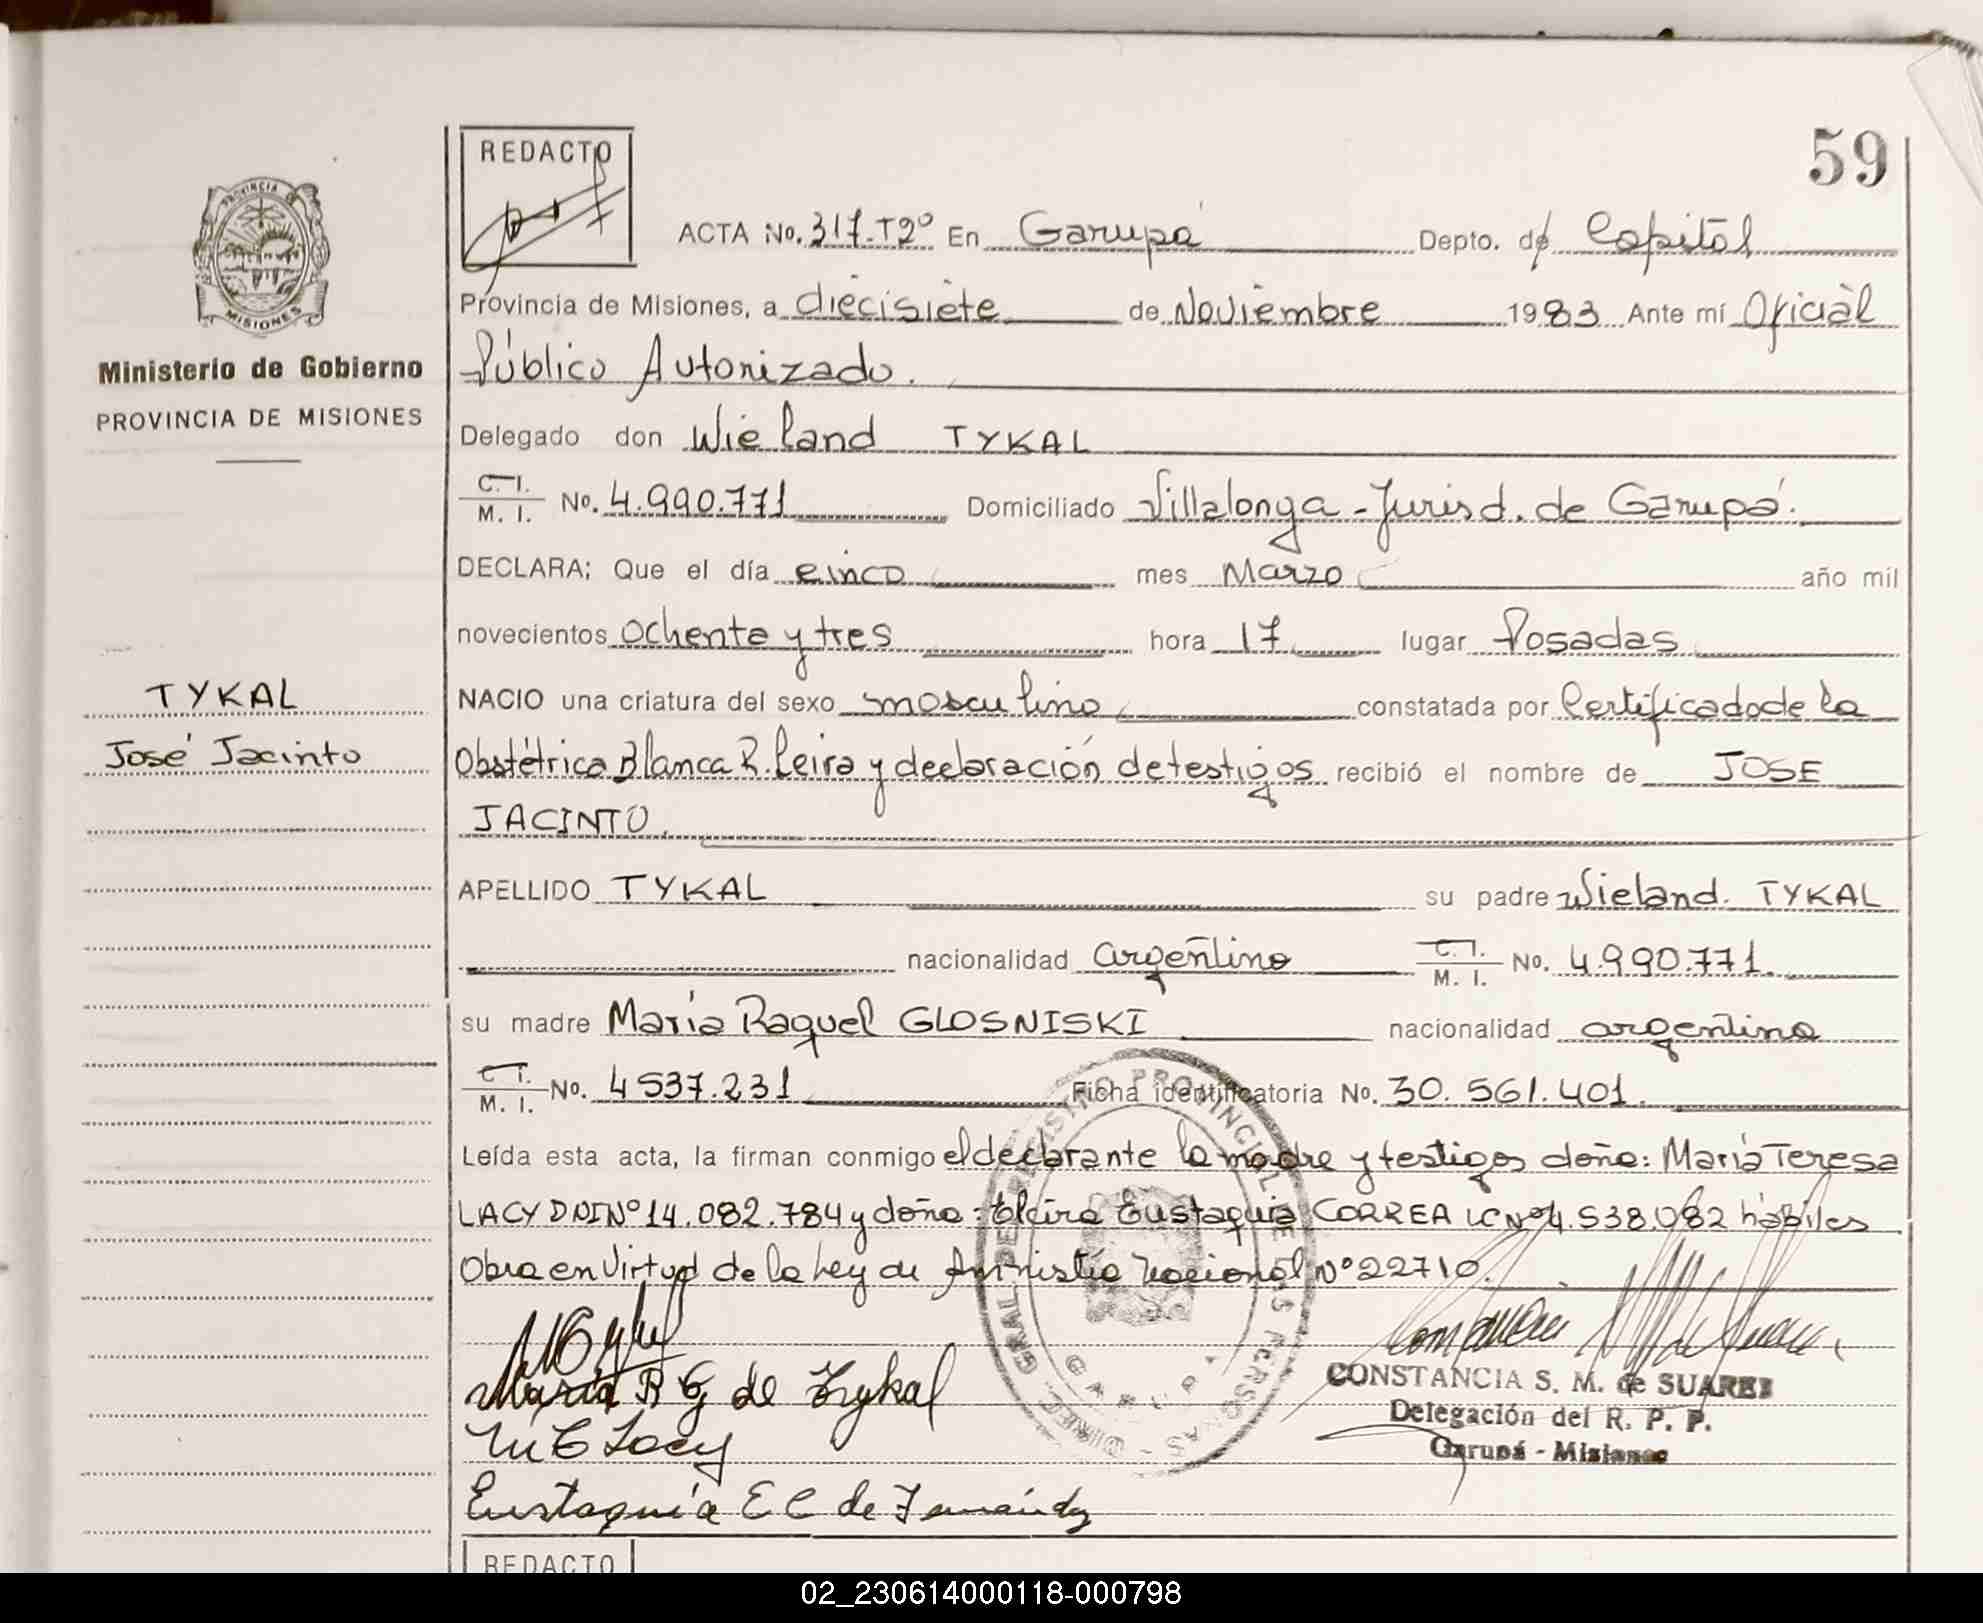 59
REDACTO
ACTA No. 317-T2º En Garupá Depto. de Capital
PROVINCIA
MISIONES
Provincia de Misiones, a diecisiete de Noviembre 1983 Ante mí Oficial
Ministerio de Gobierno
Público Autorizado.
PROVINCIA DE MISIONES
Delegado don Wieland TYKAL
C. I.
M. I. No. 4.990.771 Domiciliado Villalonga - Jurisd. de Garupá.
DECLARA; Que el día cinco mes Marzo año mil
novecientos ochenta y tres hora 17 lugar Posadas
TYKAL
NACIO una criatura del sexo masculino constatada por Certificado de la
José Jacinto
Obstétrica Blanca R. Leira y declaración de testigos recibió el nombre de JOSE
JACINTO.
APELLIDO TYKAL su padre Wieland. TYKAL
nacionalidad argentino C. I. M. I. No. 4.990.771.
su madre María Raquel GLOSNISKI nacionalidad argentina
C. I.
M. I. No. 4537.231 Ficha identificatoria No. 30.561.401.
Leída esta acta, la firman conmigo el declarante la madre y testigos doña: María Teresa
LACY DNI Nº 14.082.784 y doña: Elcira Eustaquia CORREA LC Nº 4.538.082 hábiles
Obra en Virtud de la Ley de Amnistía Nacional Nº 22710.
María R G de Tykal
CONSTANCIA S. M. de SUAREZ
M T Lacy
Delegación del R. P. P.
Garupá - Misiones
Eustaquia E C de Fernández
REGISTRO PROVINCIAL DE LAS PERSONAS - DIREC. GRAL. DEL
GARUPA
REDACTO
02_230614000118-000798